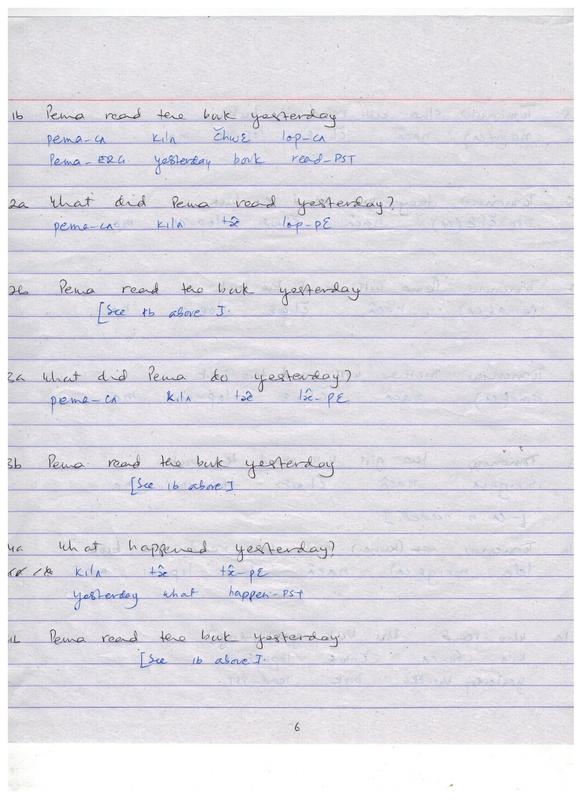 1b Pema read the book yesterday
pema-cʌ kilʌ čhwɛ lop-cʌ
Pema-ERG yesterday book read-PST
2a What did Pema read yesterday?
pema-cʌ kilʌ lop-pɛ
2b Pema read the book yesterday
[See 1b above].
3a What did Pema do yesterday?
pema-cʌ kilʌ
3b Pema read the book yesterday
[See 1b above]
4a What happened yesterday?
kilʌ
yesterday what happen-PST
4b Pema read the book yesterday
[See 1b above]
6